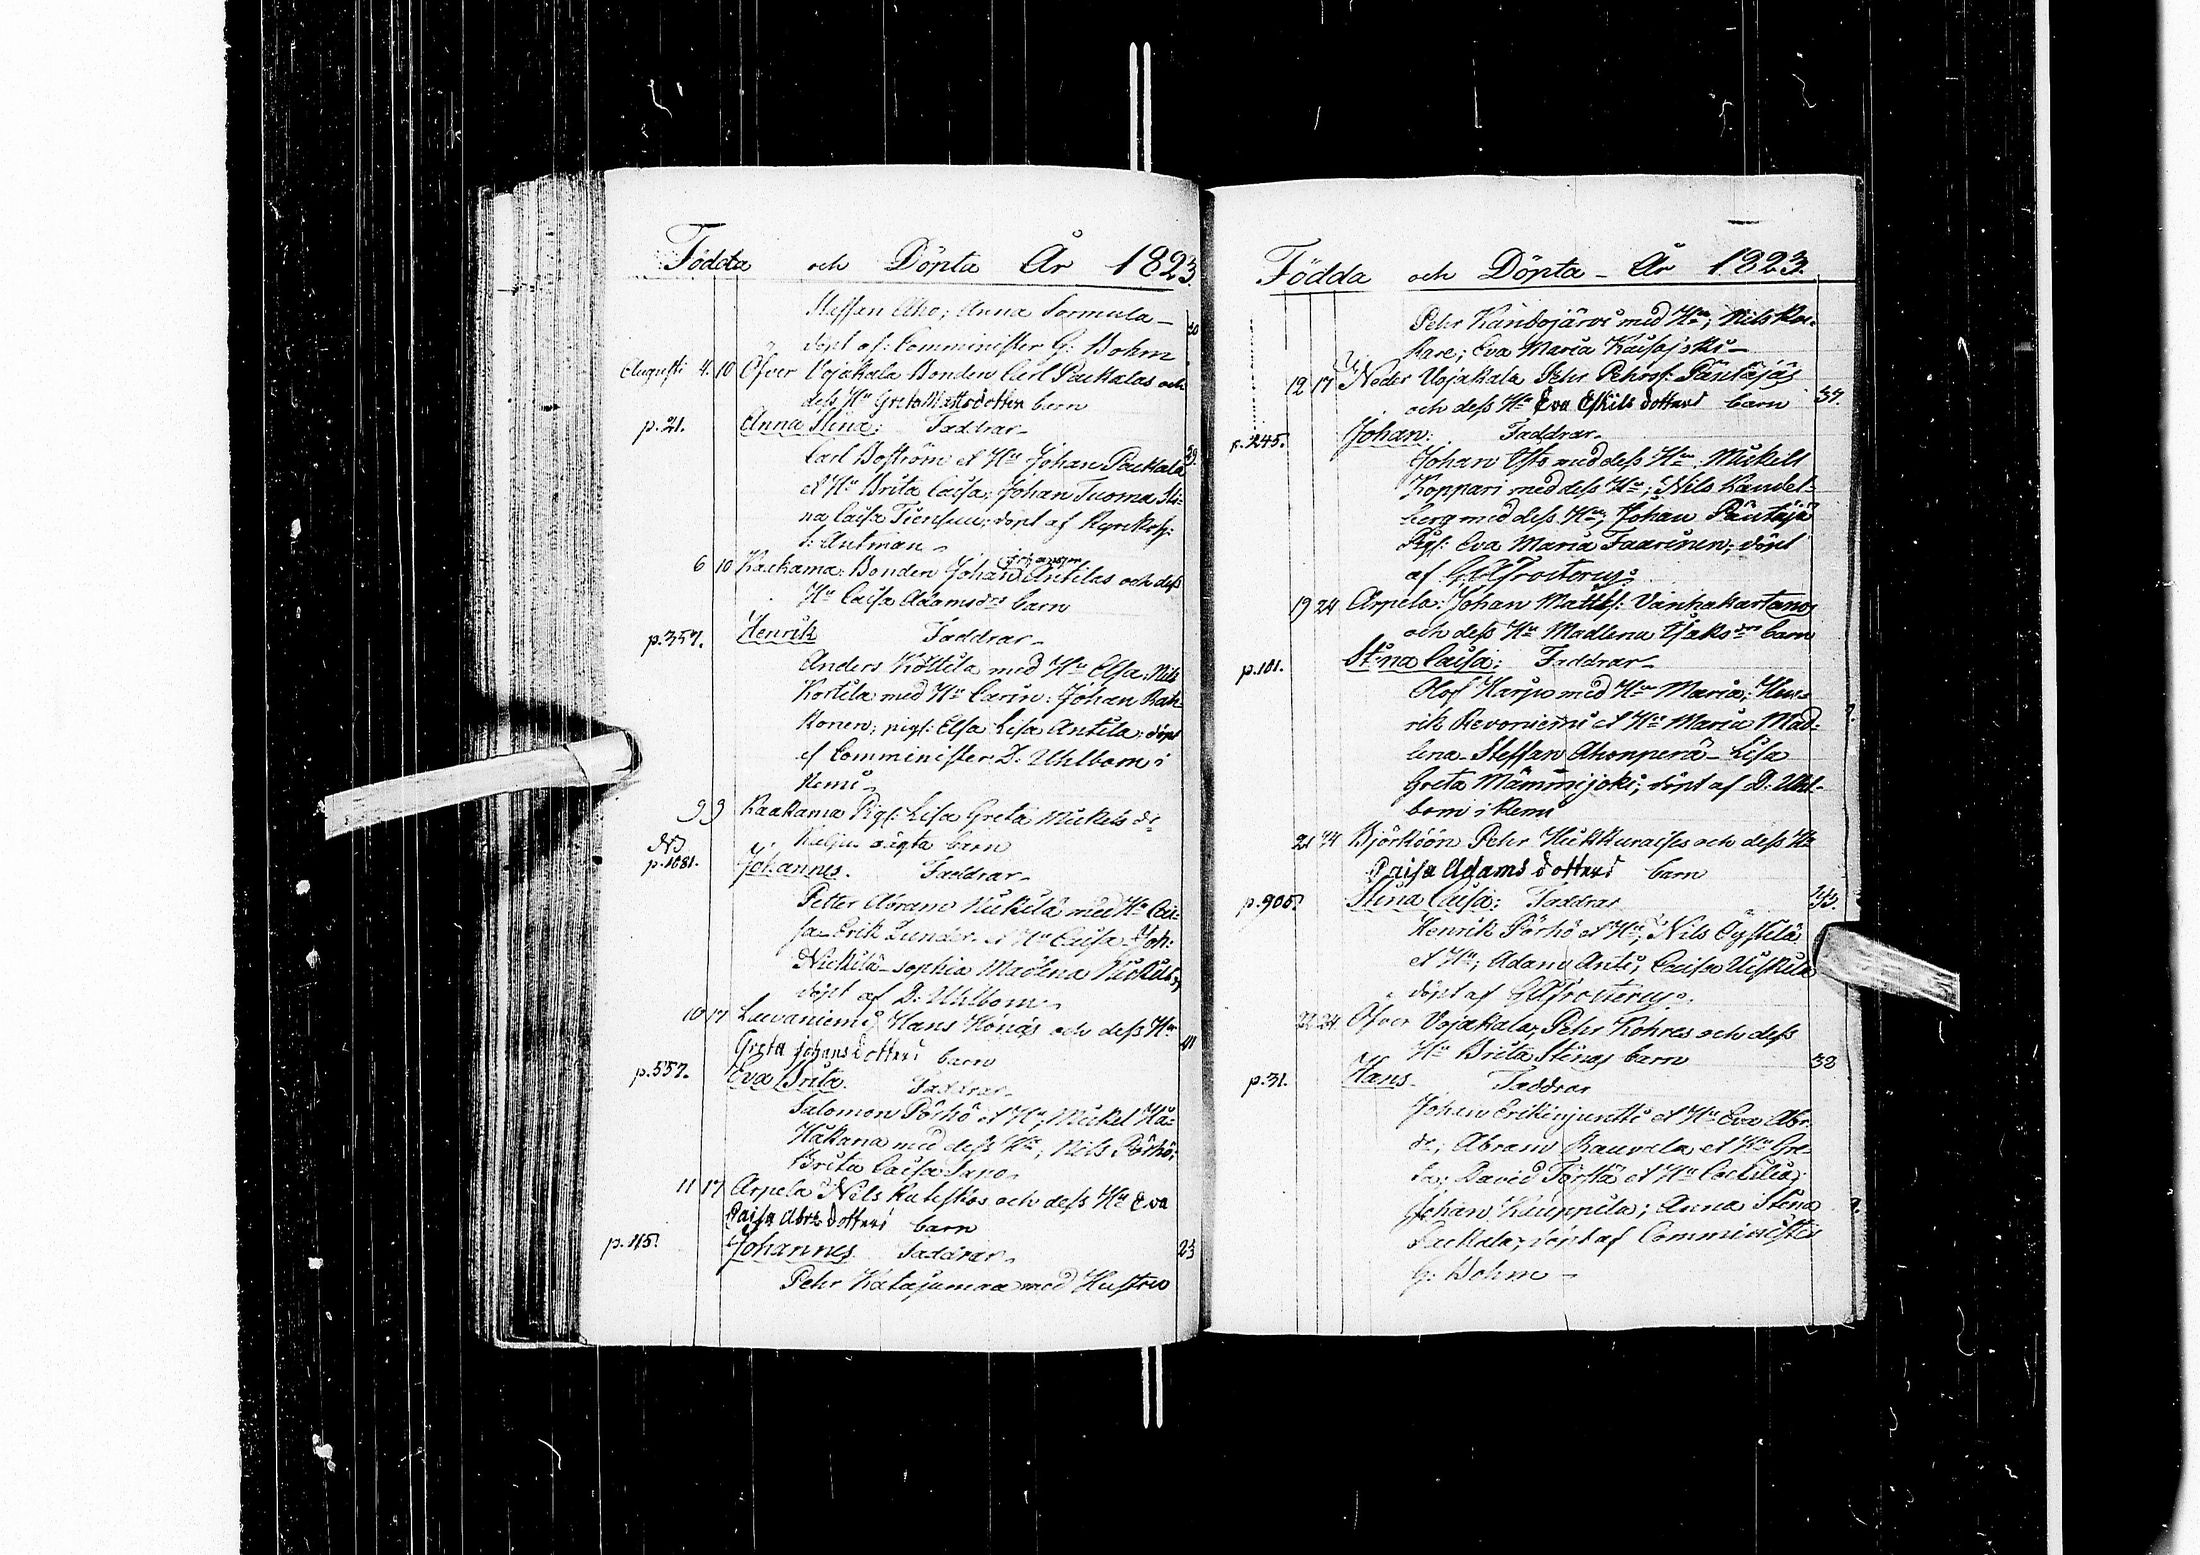 Födda och Döpta År 1823
Steffan Aho; Anna Sormula
döpt af: Comminister G: Bohm
Augusti 4. 10 Öfver Vojakala Bonden Carl Packalas och
dess Hu Greta Mattsdotters barn
p. 21. Anna Stina: Faddrar
Carl Boström et Hu Johan Packala
et Hu Brita Caisa; Johan Tuoma Sti-
na Caisa; döpt af
S: Antman
6 10 Raukama: Bonden Johan Johansson Antilas och dess
Hu Caisa Adamsdrs barn
p. 357. Henrik Faddrar
Anders Köllilä med Hu Elsa; Nils
Kortila med Hu Carin; Johan Rak-
konen; pigs: Elsa Lisa Antila; döpt
af Comminister D. Uhlbom i
Kemi
9 9 Raakama Pigs: Lisa Greta Mickels dr
oägta barn
p. 1081. Johannes. Faddrar
Petter Abram Nickilä med Hu Cai-
sa Erik Zunder et Hu Caisa Joh:
Nickilä Sophia Madlena
döpt af D: Uhlbom
10 17 Luvaniemi Hans Hönäs och dess Hu
Greta Johansdotters barn 41
p. 557. Eva Brita. Faddrar
Salomon Pörhö et Hu; Mickel Ha-
Hakana med dess Hu; Nils Pörhö;
Brita Caisa
11 17 Arpela Nils Ruteskos och dess Hu Eva
Caisa Abr: dotters barn
p. 115. Johannes Faddrar 23
Pehr Katajamaa med Hustru
Födda och Döpta År 1823.
Pehr Kandojärvi med Hu; Nils
Eva Maria Kaisajoki
12 17 Neder Vojakala Pehr Pehrss: Päntäjäs
och dess Hu Eva Eskils dotters barn 37.
p. 245. Johan: Faddrar
Johan med dess Hu; Mickell
Koppari med dess Hu; Nils Randel-
berg med dess Hu; Johan Päntäjä
Pigs: Eva Maria Taarinen; döpt
af
19 24 Arpela: Johan Matts: Vanhakartanos
och dess Hu Madlena Isaksdrs barn
p. 101. Stina Caisa: Faddrar
Olof Harju med Hu Maria; Hen-
rik Revoniemi et Hu Maria Mad-
lena Steffan Ahonperä Lisa
Greta Mämmijoki; döpt af D: Uhl-
bom i Kemi
21 24 Björköön Pehr Hukkuraises och dess Hu
Caisa Adams dotters barn
p. 905. Stina Caisa: Faddrar 35.
Henrik Pörhö et Hu; Nils
et Hu; Adam Anti; Caisa
döpt af
22 24 Öfver Vojakala; Pehr Kohres och dess
Hu Brita Stinas barn 38
p. 31. Hans. Faddrar
Johan Erikinjuntti et Hu Eva Abr:
dr; Abram Rauvala et Hu Gre-
ta; David Törttä et Hu Cecilia;
Johan Kuuppila; Anna Stina
Packala; döpt af Comminister
G: Bohm